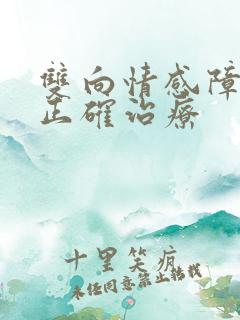 雙向情感障
正確治療
十里笑疯
未经同意禁止转载